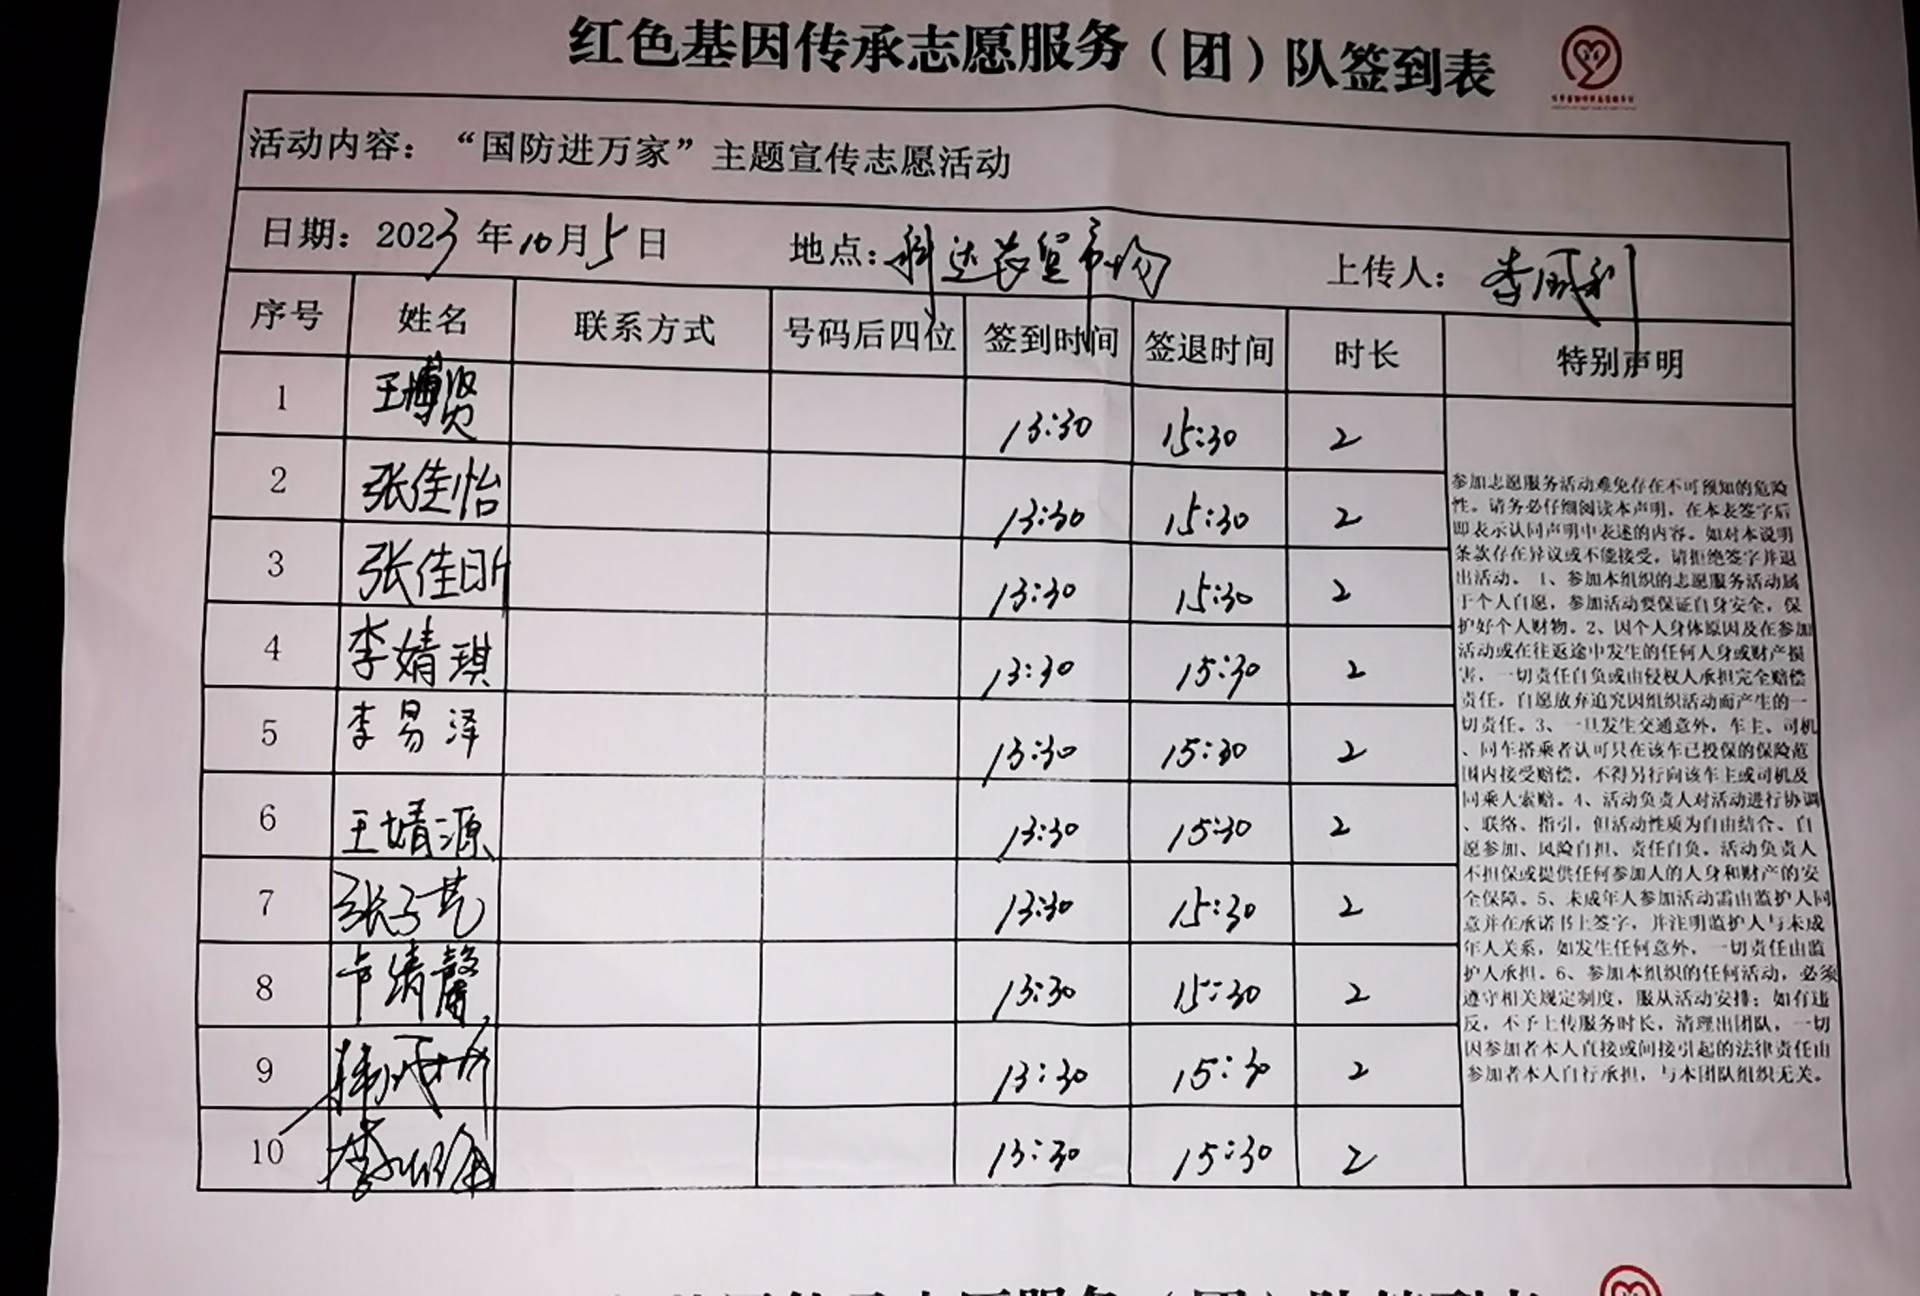 红色基因传承志愿服务（团）队签到表
活动内容：“国防进万家”主题宣传志愿活动
日期：2023年10月5日 地点：科达农贸市场 上传人：李威利
序号 姓名 联系方式 号码后四位 签到时间 签退时间 时长 特别声明
1 王博贤 13:30 15:30 2
2 张佳怡 13:30 15:30 2
3 张佳昕 13:30 15:30 2
4 李婧琪 13:30 15:30 2
5 李易泽 13:30 15:30 2
6 王婧源 13:30 15:30 2
7 张子艺 13:30 15:30 2
8 卞婧馨 13:30 15:30 2
9 13:30 15:30 2
10 13:30 15:30 2
参加志愿服务活动难免存在不可预知的危险
性。请务必仔细阅读本声明，在本表签字后
即表示认同声明中表述的内容。如对本说明
条款存在异议或不能接受，请拒绝签字并退
出活动。 1、参加本组织的志愿服务活动属
于个人自愿，参加活动要保证自身安全，保
护好个人财物。2、因个人身体原因及在参加
活动或在往返途中发生的任何人身或财产损
害，一切责任自负或由侵权人承担完全赔偿
责任，自愿放弃追究因组织活动而产生的一
切责任。3、一旦发生交通意外，车主、司机
、同车搭乘者认可只在该车已投保的保险范
围内接受赔偿，不得另行向该车主或司机及
同乘人索赔。4、活动负责人对活动进行协调
、联络、指引，但活动性质为自由结合、自
愿参加、风险自担、责任自负。活动负责人
不担保或提供任何参加人的人身和财产的安
全保障。5、未成年人参加活动需由监护人同
意并在承诺书上签字，并注明监护人与未成
年人关系，如发生任何意外，一切责任由监
护人承担。6、参加本组织的任何活动，必须
遵守相关规定制度，服从活动安排；如有违
反，不予上传服务时长，清理出团队，一切
因参加者本人直接或间接引起的法律责任由
参加者本人自行承担，与本团队组织无关。